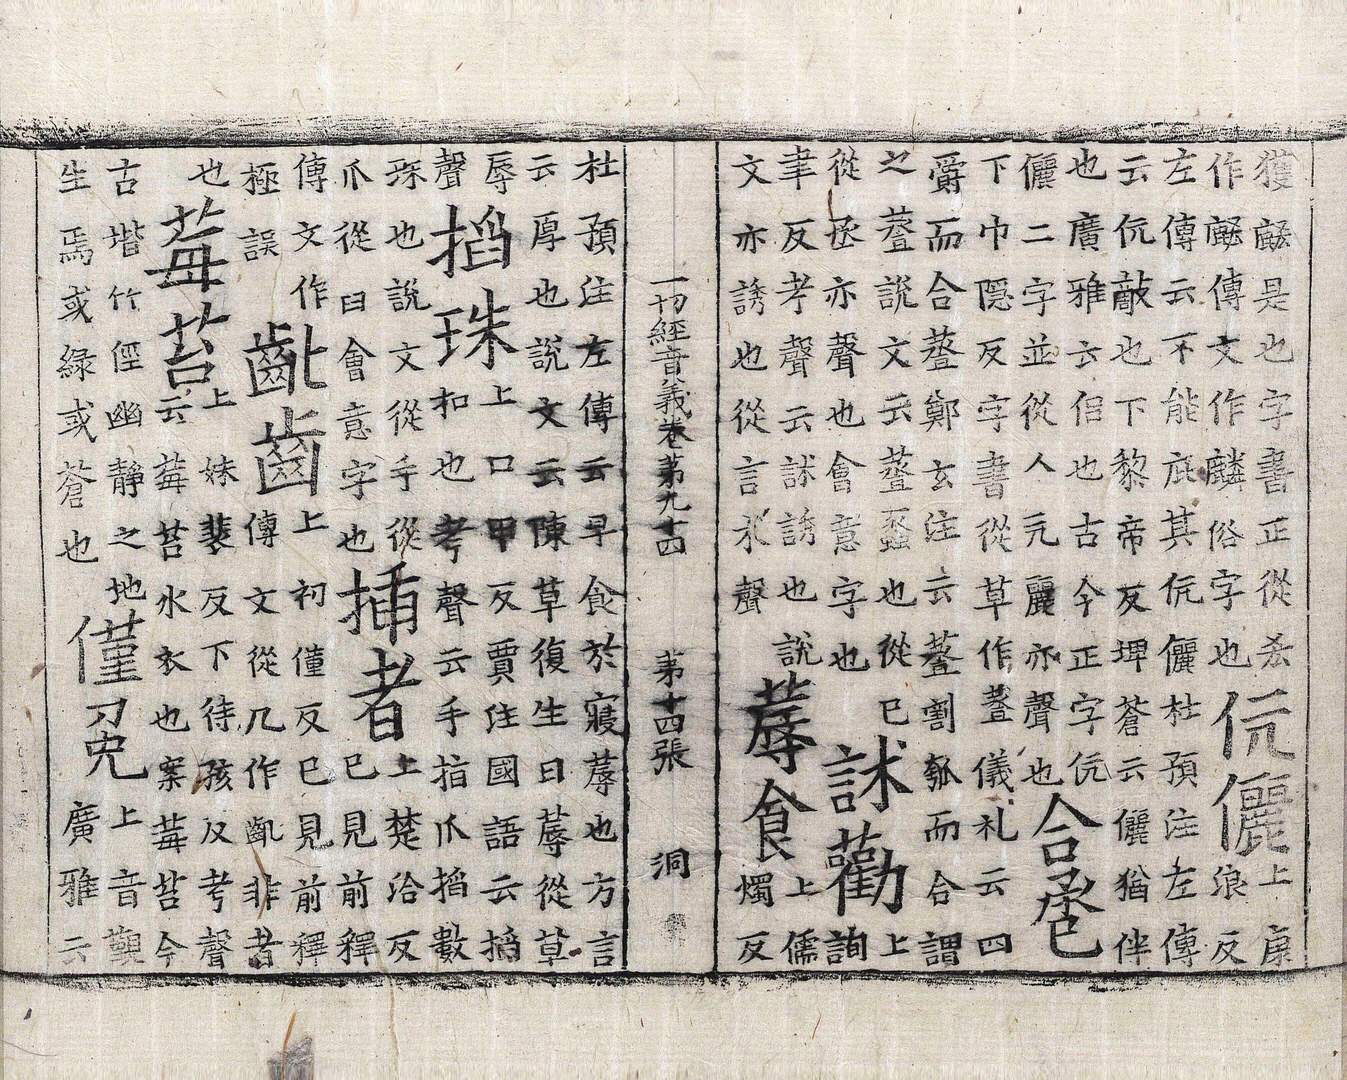 獲𪋯是也字書正從㣇
作𪋯傳文作麟俗字也
伉儷
上康
浪反
左傳云不能庇其伉儷杜預注左傳
云伉敵也下黎帝反埤蒼云儷猶伴
也廣雅云侶也古今正字伉
儷二字並從人亢麗亦聲也
合巹
下巾隱反字書從草作䔲儀礼云四
爵而合䔲鄭玄注云䔲割瓠而合謂
之䔲說文云䔲蠡也從巳
從丞亦聲也會意字也
訹勸
上
詢
聿反考聲云訹誘也說
文亦誘也從言朮聲
蓐食
上儒
燭反
一切經音義卷第九十四 第十四張 洞
杜預注左傳云早食於寢蓐也方言
云厚也說文云陳草復生曰蓐從草
辱
聲
掐珠
上口甲反賈注國語云掐
扣也考聲云手指爪掐數
珠也說文從手從
爪從臼會意字也
插者
上楚洽反
已見前釋
傳文作
極誤
齔齒
上初僅反已見前釋
傳文從几作齓非者
也
莓苔
上妹裴反下待孩反考聲
云莓苔水衣也案莓苔今
古堦竹徑幽靜之地
生焉或綠或蒼也
僅免
上音覲
廣雅云